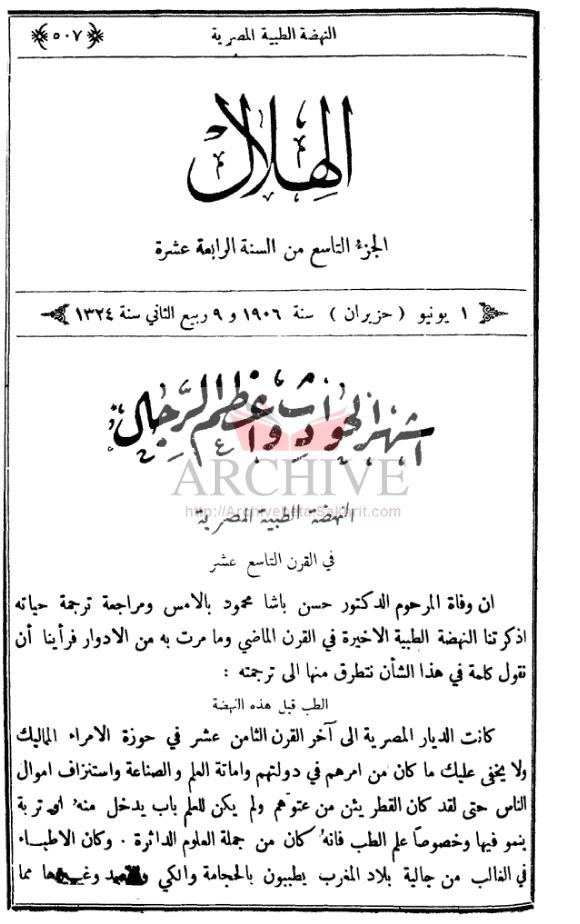 النهضة الطبية المصرية
٥٠٧
الهلال
الجزء التاسع من السنة الرابعة عشرة
١ يونيو ( حزيران ) سنة ١٩٠٦ و ٩ ربيع الثاني سنة ١٣٢٤
اشهر الحوادث واعظم الرجال
ARCHIVE
http://Archivebeta.Sakhrit.com
النهضة الطبية المصرية
في القرن التاسع عشر
ان وفاة المرحوم الدكتور حسن باشا محمود بالامس ومراجعة ترجمة حياته
اذكرتنا النهضة الطبية الاخيرة في القرن الماضي وما مرت به من الادوار فرأينا أن
نقول كلمة في هذا الشأن نتطرق منها الى ترجمته :
الطب قبل هذه النهضة
كانت الديار المصرية الى آخر القرن الثامن عشر في حوزة الامراء المماليك
ولا يخفى عليك ما كان من امرهم في دولتهم واماتة العلم والصناعة واستنزاف اموال
الناس حتى لقد كان القطر يئن من عتوّهم ولم يكن للعلم باب يدخل منهُ او تربة
ينمو فيها وخصوصاً علم الطب فانهُ كان من جملة العلوم الداثرة . وكان الاطباء
في الغالب من جالية بلاد المغرب يطببون بالحجامة والكي والفصد وغيرها مما